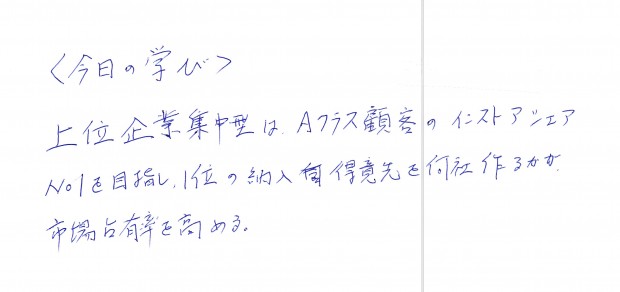 <今日の学び>
上位企業集中型は、Aクラス顧客のインストアシェア
No1を目指し、1位の納入得意先を何社作るかが、
市場占有率を高める。